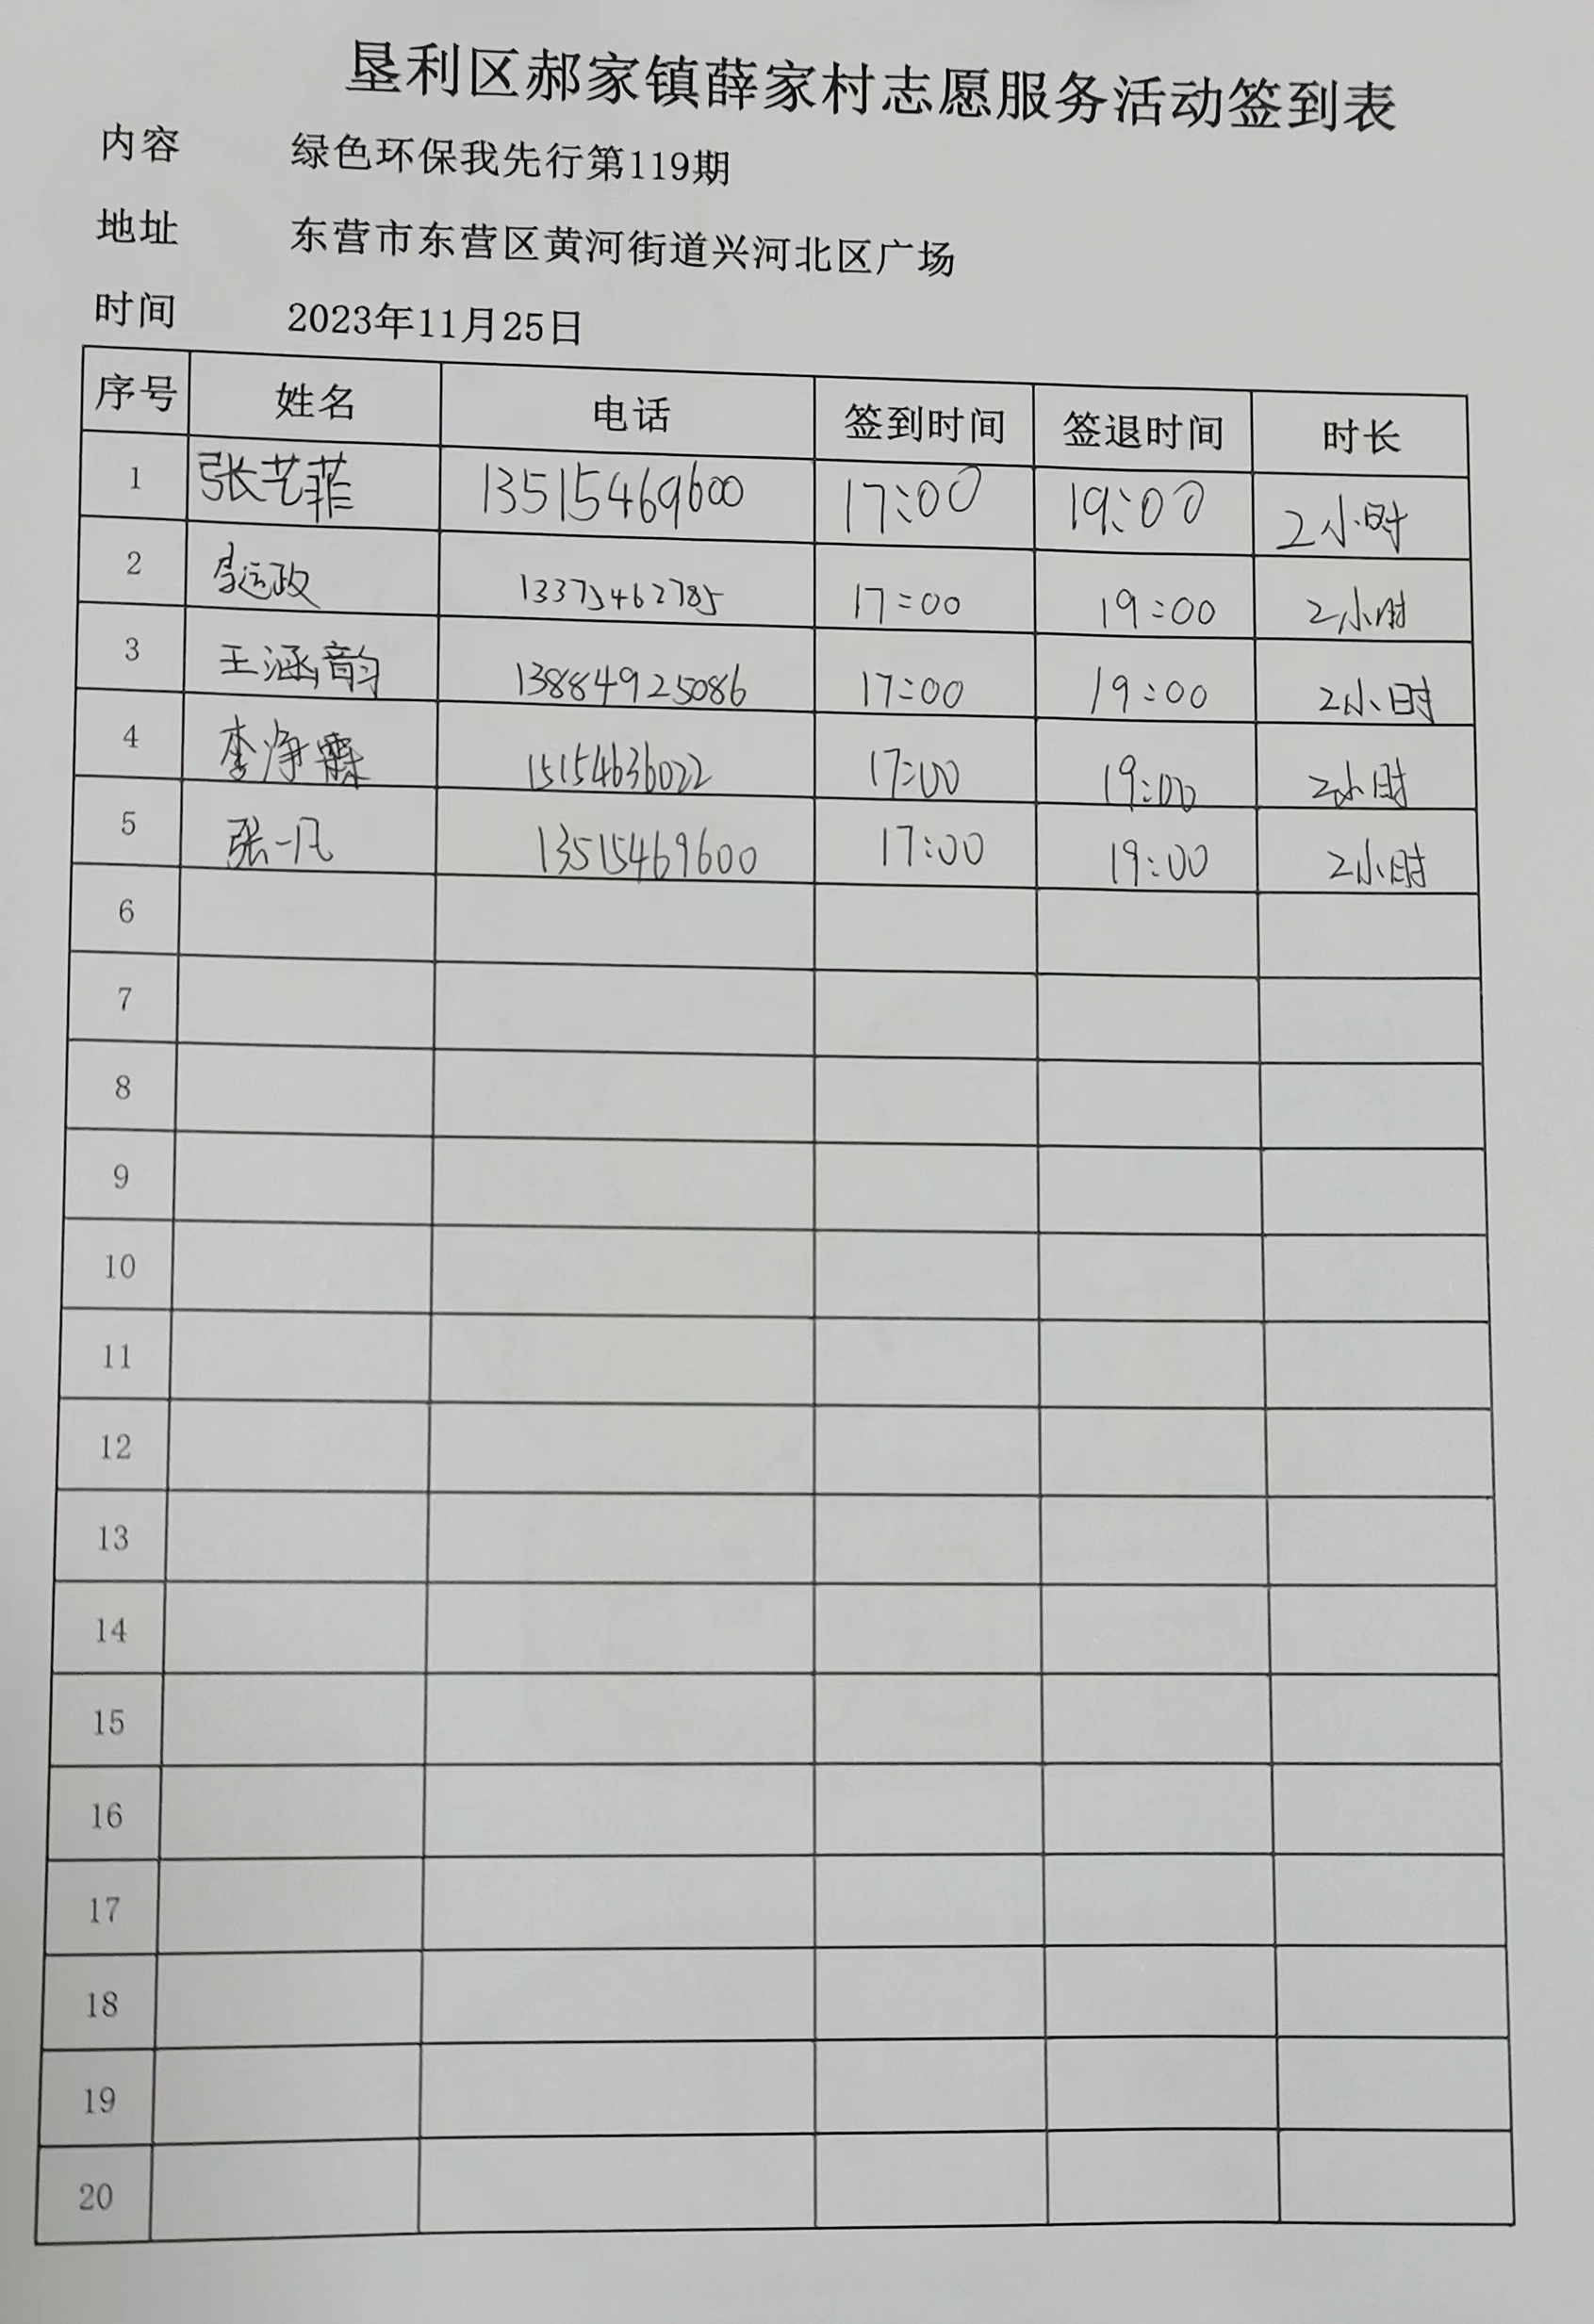 垦利区郝家镇薛家村志愿服务活动签到表
内容 绿色环保我先行第119期
地址 东营市东营区黄河街道兴河北区广场
时间 2023年11月25日
序号 姓名 电话 签到时间 签退时间 时长
1 张艺菲 13515469600 17:00 19:00 2小时
2 李运政 13375462785 17:00 19:00 2小时
3 王涵韵 13884925086 17:00 19:00 2小时
4 李净霖 15154636022 17:00 19:00 2小时
5 张一凡 13515469600 17:00 19:00 2小时
6
7
8
9
10
11
12
13
14
15
16
17
18
19
20